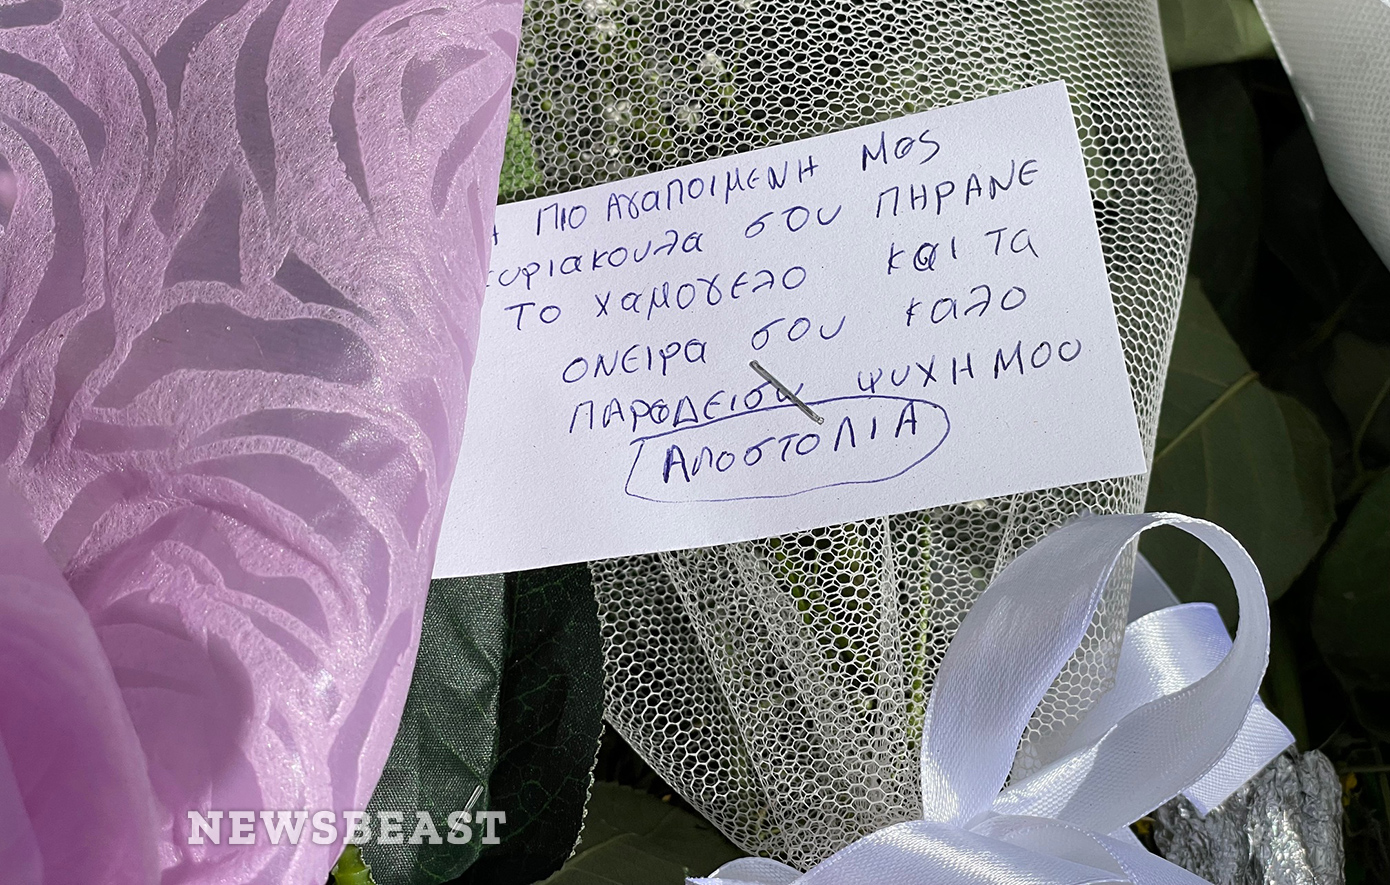 Η ΠΙΟ ΑγαΠΟΙΜΕΝΗ Μας
κυριακουλα σου ΠΗΡΑΝΕ
ΤΟ χαΜΟγΕλΟ και Τα
ΟΝΕΙΡα σου καλο
ΠΑΡαΔΕΙσο ΨΥΧΗ ΜΟΥ
ΑΠΟσΤΟΛΙΑ
NEWSBEAST